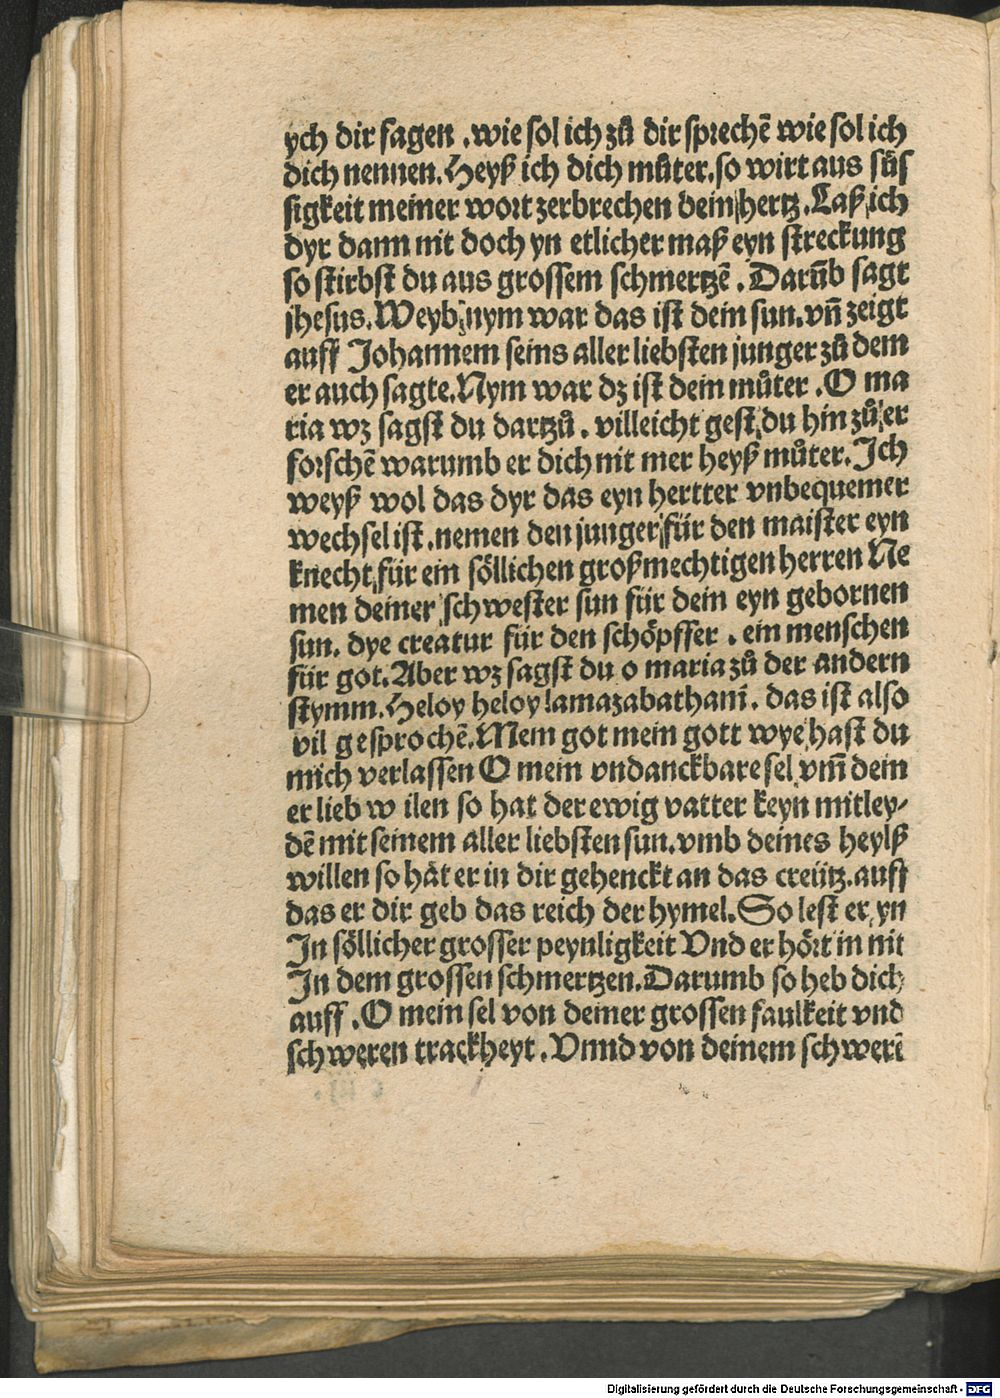 ych dir sagen .wie sol ich zů dir sprechē wie sol ich
dich nennen. Heyß ich dich můter.so wirt aus sůs
sigkeit meiner wort zerbrechen dein hertz. Laß ich
dyr dann nit doch yn etlicher maß eyn streckung
so stirbst du aus grossem schmertzē. Darūb sagt
jhesus. Weyb nym war das ist dein sun. vn̄ zeigt
auff Johannem seins aller liebsten junger zů dem
er auch sagte. Nym war dz ist dein můter. O ma
ria wz sagst du dartzů. villeicht gest du hin zů er
forschē warumb er dich nit mer heyß můter. Ich
weyß wol das dyr das eyn hertter vnbequemer
wechsel ist. nemen den junger für den maister eyn
knecht für ein söllichen großmechtigen herren Ne
men deiner schwester sun für dein eyn gebornen
sun. dye creatur für den schöpffer. ein menschen
für got. Aber wz sagst du o maria zů der andern
stymm. Heloy heloy lamazabathani. das ist also
vil gesprochē. Mein got mein gott wye hast du
mich verlassen O mein vndanckbare sel vm̄ dein
er lieb w ilen so hat der ewig vatter keyn mitley⸗
dē mit seinem aller liebsten sun. vmb deines heylß
willen so hāt er in dir gehenckt an das creütz. auff
das er dir geb das reich der hymel. So lest er yn
In söllicher grosser peynligkeit Vnd er hört in nit
In dem grossen schmertzen. Darumb so heb dich
auff. O mein sel von deiner grossen faulkeit vnd
schweren trackheyt. Vnnd von deinem schwerē
Digitalisierung gefördert durch die Deutsche Forschungsgemeinschaft - DFG